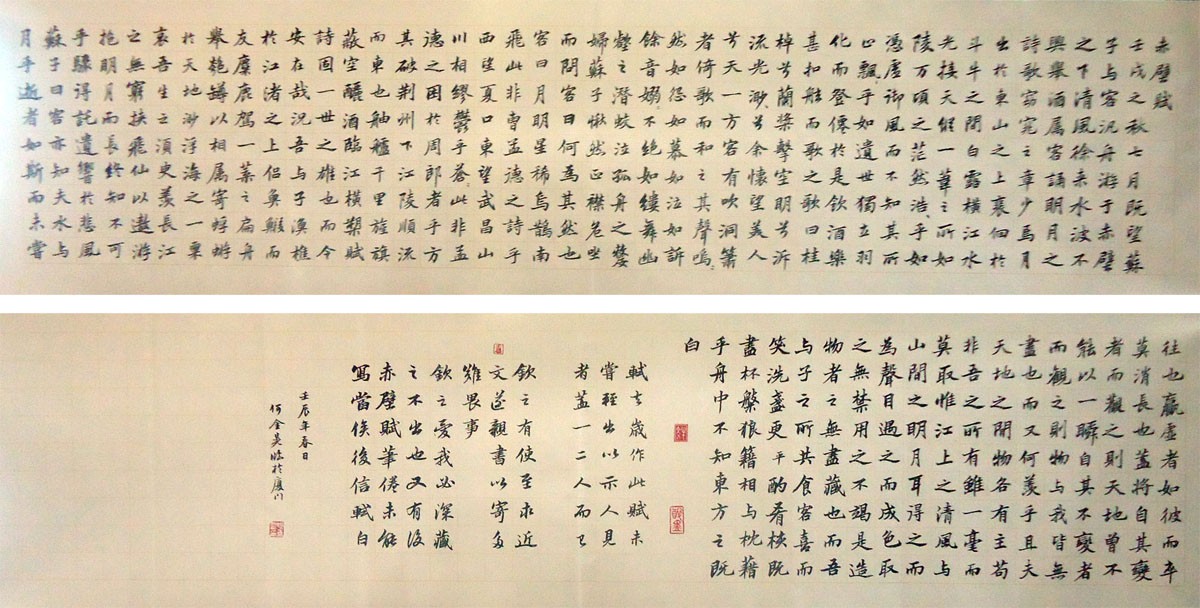 赤壁賦
壬戌之秋七月既望蘇
子與客泛舟游于赤壁
之下清風徐来水波不
興舉酒属客誦明月之
詩歌窈窕之章少焉月
出於東山之上裵佪於
斗牛之間白露横江水
光接天縱一葦之所如
陵万頃之茫然浩乎如
憑虚御風而不知其所
止飄乎如遺世獨立羽
化而登僊於是飲酒樂
甚扣舷而歌之歌曰桂
棹兮蘭槳擊空明兮泝
流光渺兮余懷望美人
兮天一方客有吹洞簫
者倚歌而和之其聲嗚
然如怨如慕如泣如訴
餘音嫋不絶如縷舞幽
壑之潛蛟泣孤舟之嫠
婦蘇子愀然正襟危坐
而問客曰何為其然也
客曰月明星稀烏鵲南
飛此非曹孟德之詩乎
西望夏口東望武昌山
川相繆鬱乎蒼此非孟
德之困於周郎者乎方
其破荆州下江陵順流
而東也舳艫千里旌旗
蔽空釃酒臨江横槊賦
詩固一世之雄也而今
安在哉況吾与子漁樵
於江渚之上侣魚鰕而
友麋鹿駕一葉之扁舟
舉匏罇以相属寄蜉蝣
於天地渺浮海之一粟
哀吾生之須臾羨長江
之無窮挟飛仙以遨游
抱明月而長終知不可
乎驟得託遺響於悲風
蘇子曰客亦知夫水与
月乎逝者如斯而未嘗
往也贏虚者如彼而卒
莫消長也蓋將自其變
者而觀之則天地曾不
能以一瞬自其不變者
而觀之則物与我皆無
盡也而又何羨乎且夫
天地之間物各有主苟
非吾之所有雖一毫而
莫取惟江上之清風与
山間之明月耳得之而
為聲目遇之而成色取
之無禁用之不竭是造
物者之無盡藏也而吾
与子之所共食客喜而
笑洗盞更酌肴核既
平
盡杯盤狼籍相与枕藉
乎舟中不知東方之既
白
軾去歲作此賦未
嘗輕出以示人見
者蓋一二人而已
欽之有使至求近
文遂親書以寄多
難畏事
欽之愛我必深藏
之不出也又有後
赤壁賦筆倦未能
寫當俟後信軾白
壬辰年春日
何金英臨於廈门